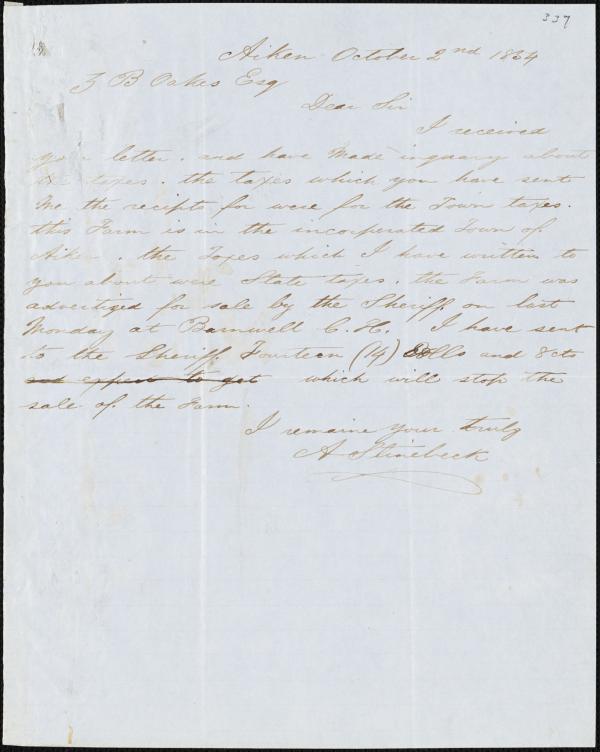 337
Aiken October 2nd 1854
Z B Oakes Esq
Dear Sir
I received
your letter. and have made inquary about
the taxes. the taxes which you have sent
me the recipts for were for the Town taxes.
this Farm is in the incorperated Town of
Aiken. the Taxes which I have written to
you about were State taxes. the Farm was
advertized for sale by the Sheriff on last
Monday at Barnwell C. H. I have sent
to the Sheriff Fourteen (14) Dolls and 8 cts
and expect to get which will stop the
sale of the Farm.
I remaine your truly
A Stinebeck